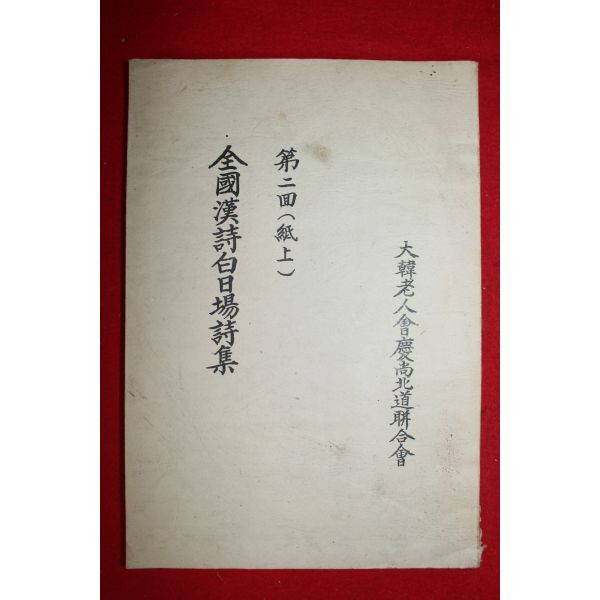 大韓老人會慶尚北道聯合會
第二回(紙上)
全國漢詩白日場詩集